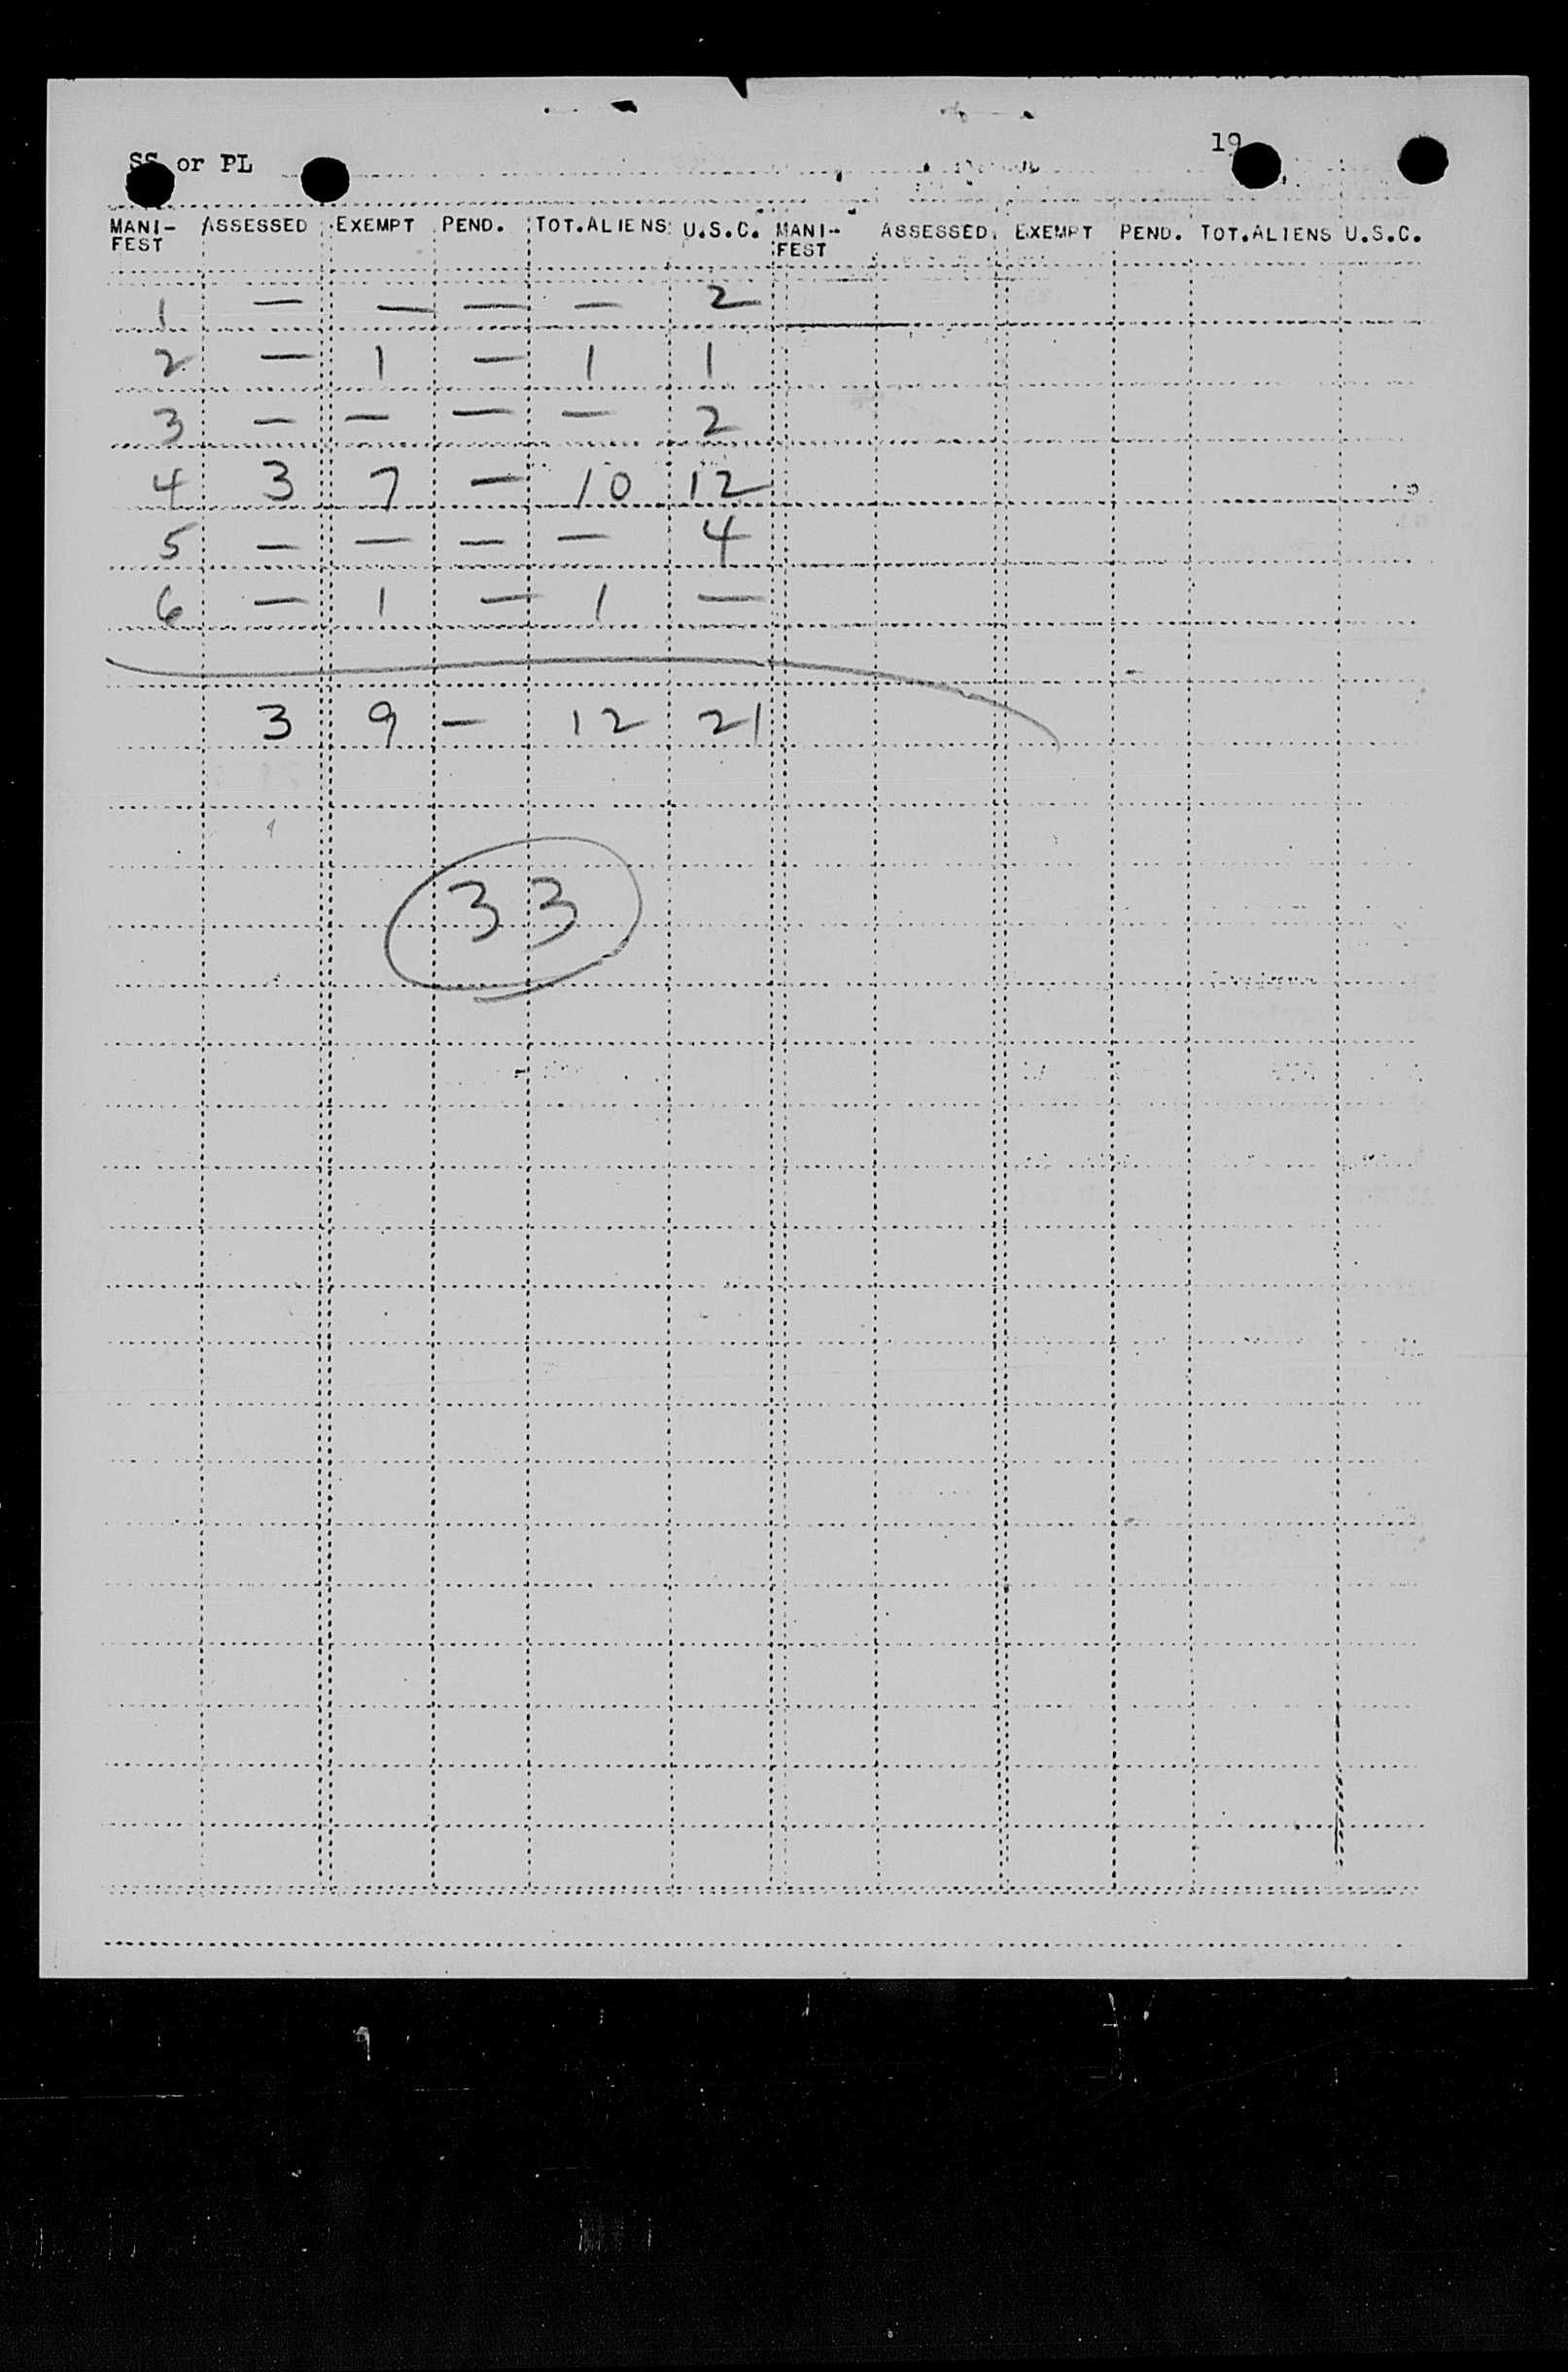 SS or PL 19
MANI-FEST ASSESSED EXEMPT PEND. TOT.ALIENS U.S.C. MANI-FEST ASSESSED EXEMPT PEND. TOT.ALIENS U.S.C.
1 — — — — 2
2 — 1 — 1 1
3 — — — — 2
4 3 7 — 10 12
5 — — — — 4
6 — 1 — 1 —
3 9 — 12 21
33